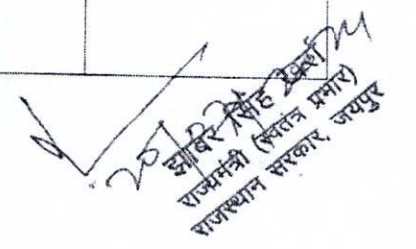 झाबर सिंह खर्रा
राज्यमंत्री (स्वतंत्र प्रभार)
राजस्थान सरकार, जयपुर